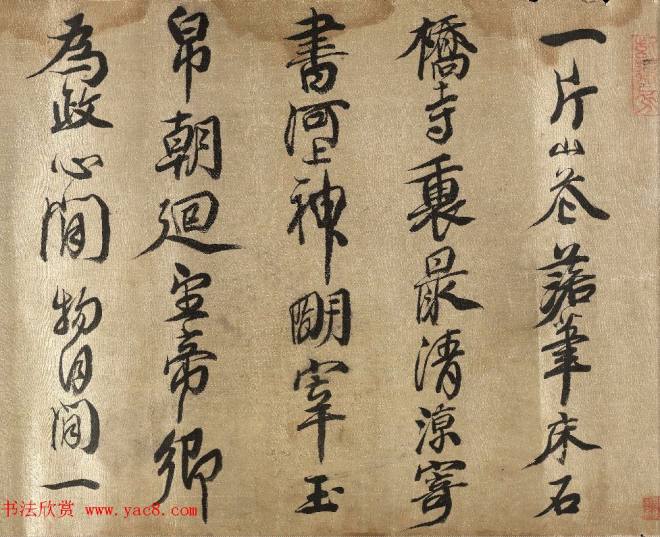 一片山花落筆床石
橋寺裏最清涼寄
書河上神明宰玉
帛朝迴望帝鄉
為政心閒物自閒一
书法欣赏 www.yac8.com